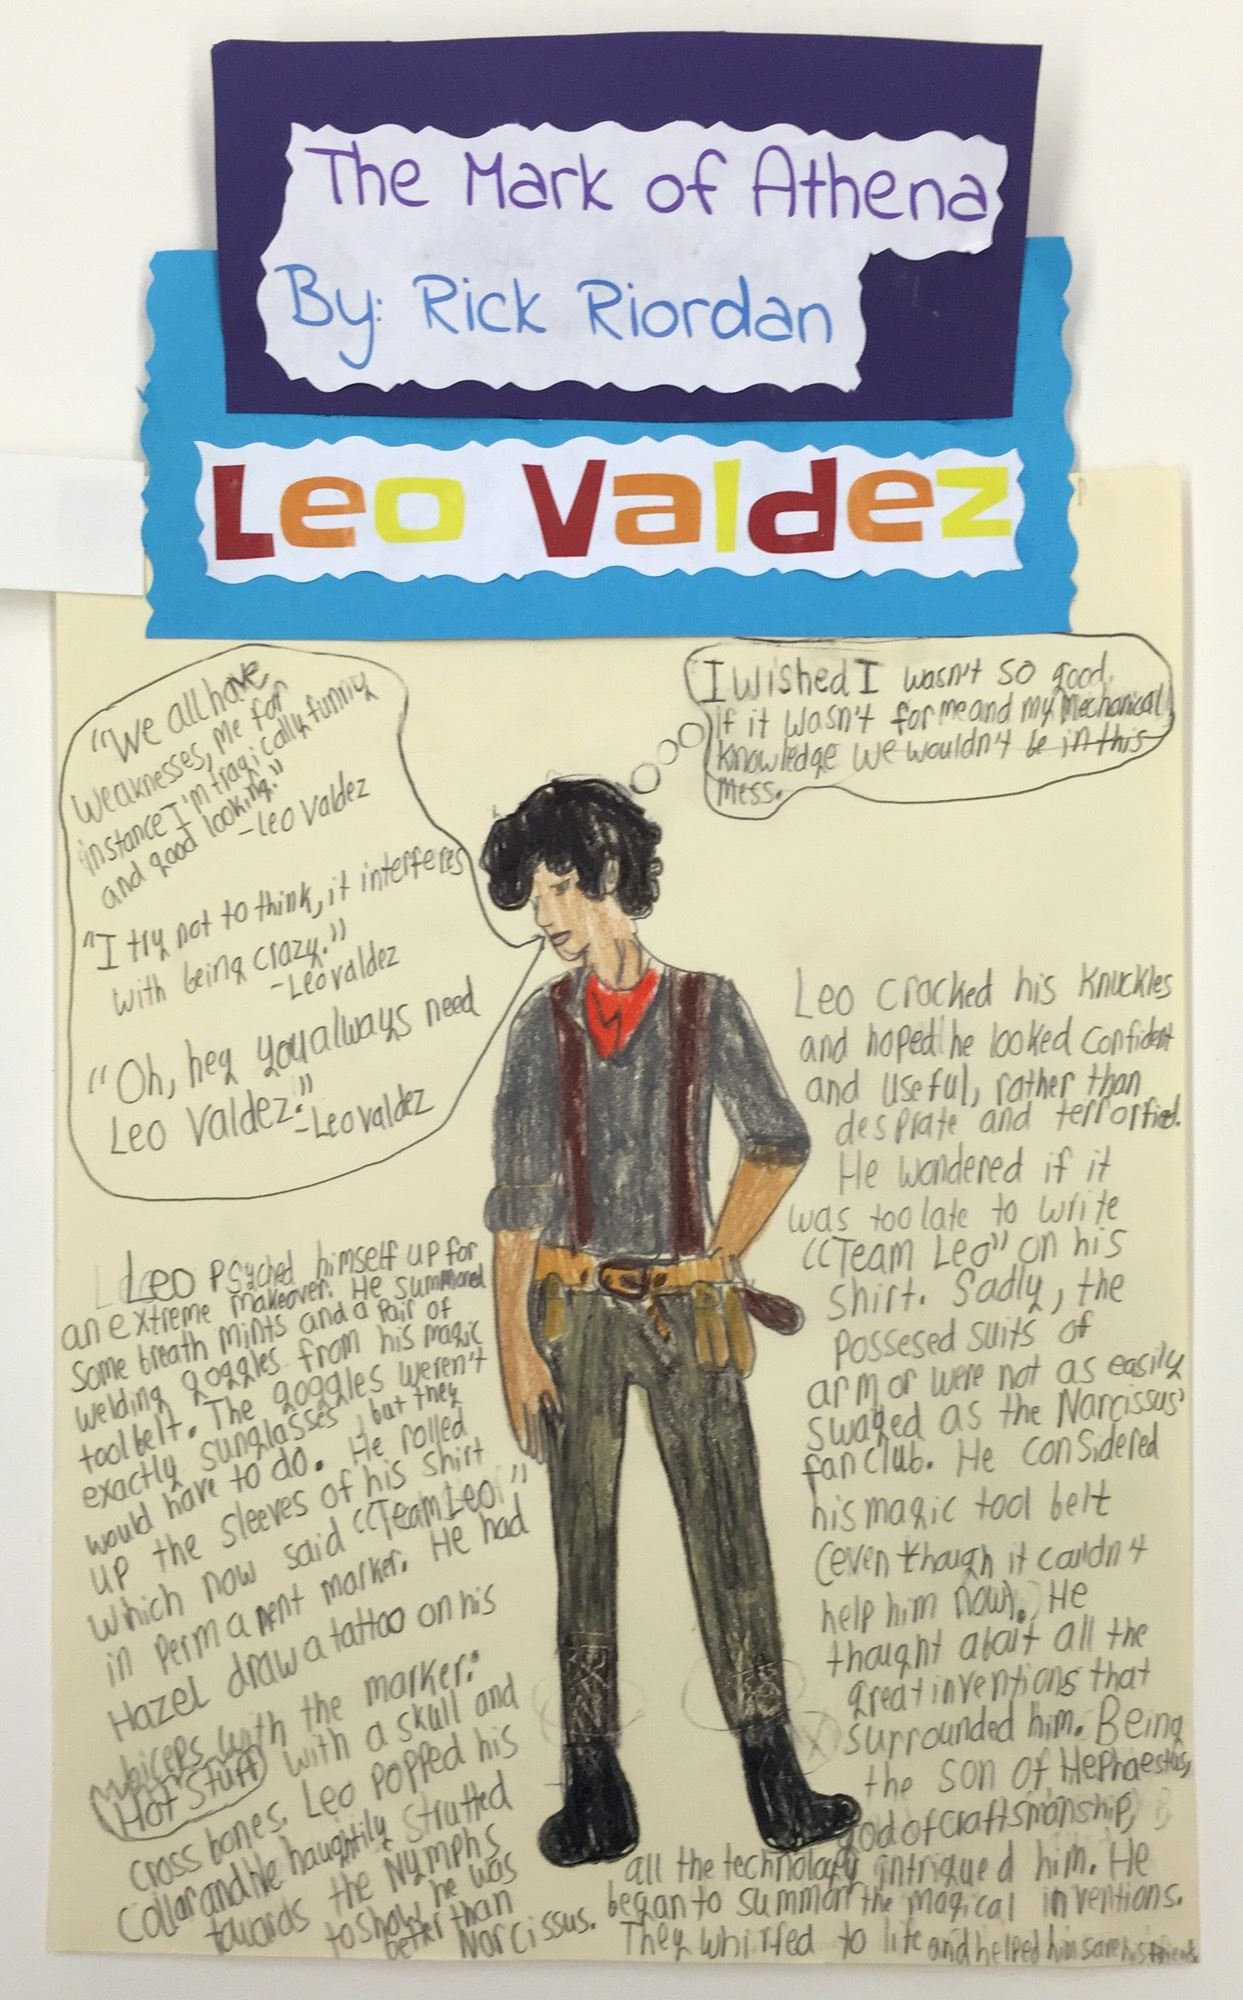 The Mark of Athena
By: Rick Riordan
Leo Valdez
"We all have
weaknesses, me for
instance I'm tragically funny
and good looking."
-Leo Valdez
"I try not to think, it interferes
with being crazy."
-Leo valdez
"Oh, hey you always need
Leo Valdez."
-Leo valdez
I wished I wasn't so good,
if it wasn't for me and my Mechanical
knowledge we wouldn't be in this
mess.
Leo psyched himself up for
an extreme makeover. He summoned
some breath mints and a pair of
welding goggles from his magic
tool belt. The goggles weren't
exactly sunglasses, but they
would have to do. He rolled
up the sleeves of his shirt
which now said "Team Leo"
in permanent marker. He had
Hazel draw a tattoo on his
biceps with the marker:
Hot Stuff with a skull and
cross bones. Leo popped his
collar and he haughtily strutted
towards the Nymphs
to show he was
better than
Narcissus.
Leo cracked his knuckles
and hoped he looked confident
and useful, rather than
desprate and terrorfied.
He wondered if it
was too late to write
"Team Leo" on his
shirt. Sadly, the
possesed suits of
armor were not as easily
swayed as the Narcissus'
fanclub. He considered
his magic tool belt
(even though it couldn't
help him now). He
thought about all the
great inventions that
surrounded him. Being
the son of Hephaestus,
god of craftsmanship,
all the technology intrigued him. He
began to summon the magical inventions.
They whirred to life and helped him save his